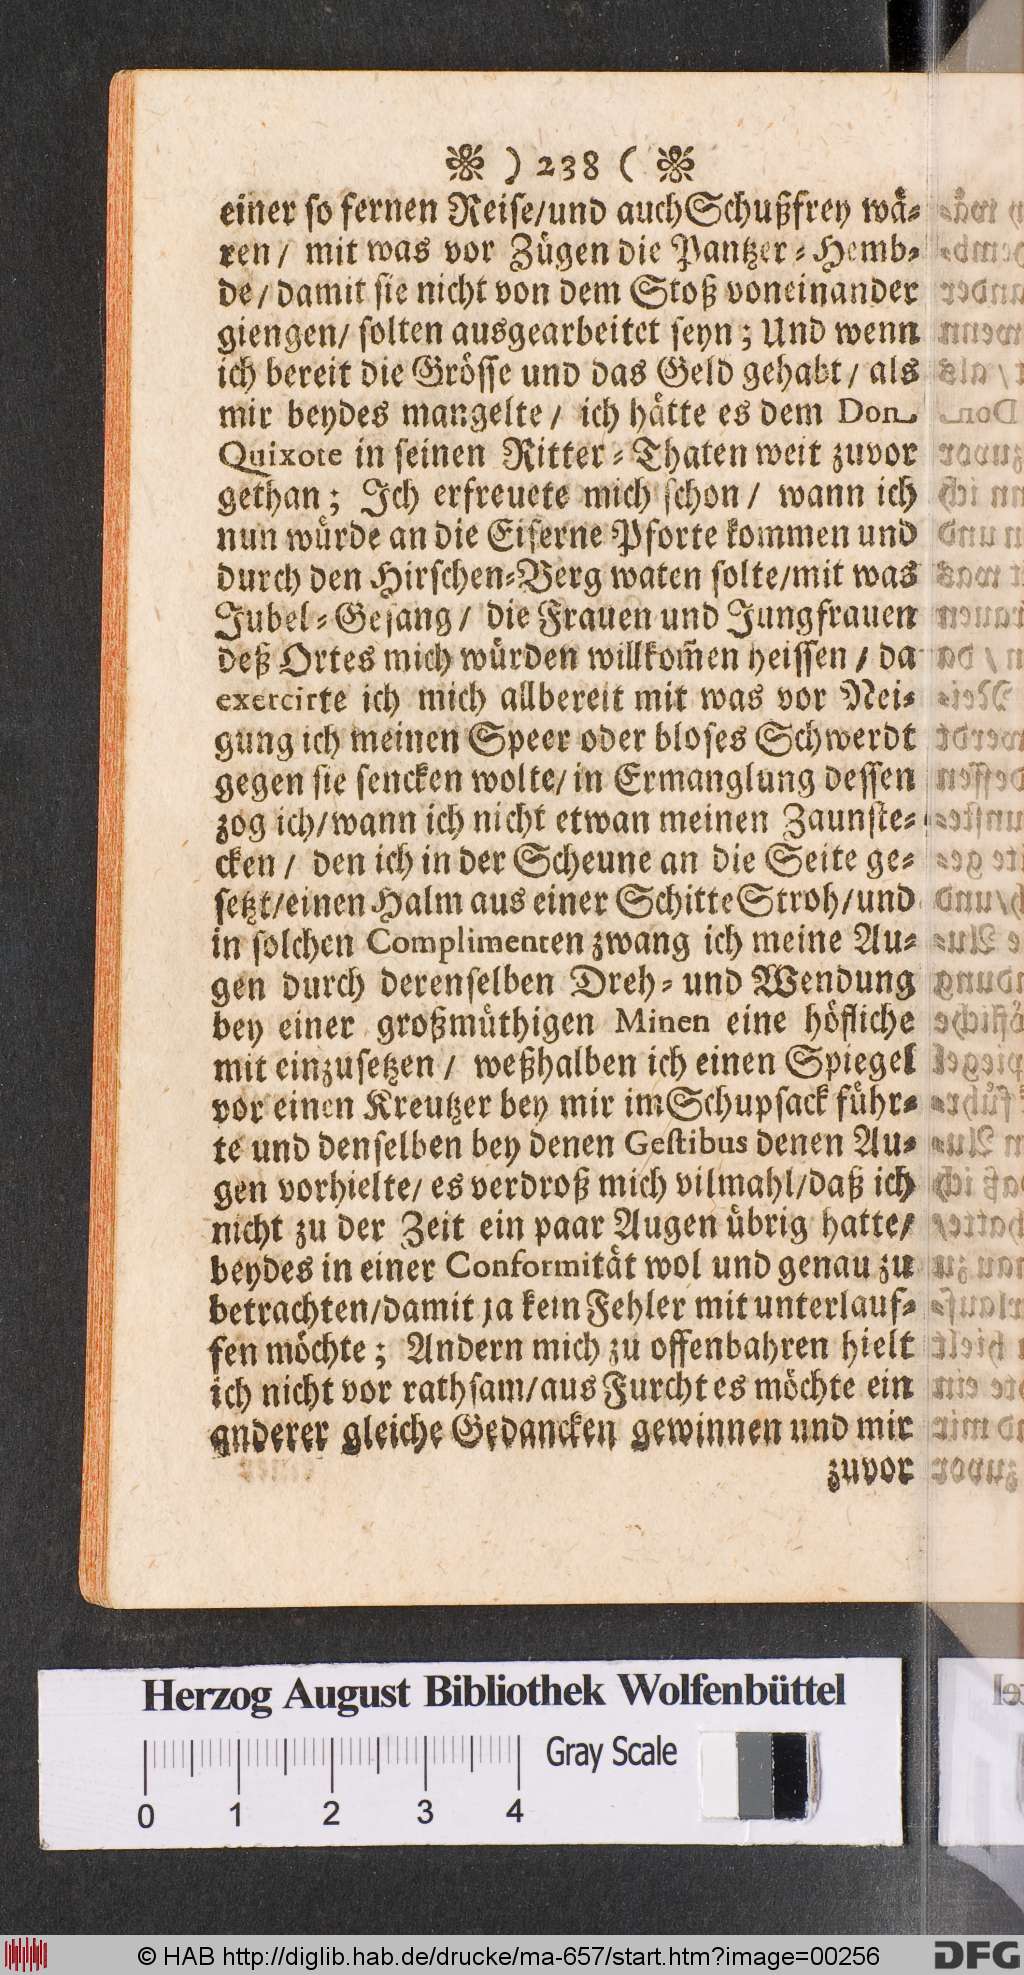 ❋ ) 238 ( ❋
einer so fernen Reise/und auch Schußfrey wä-
ren / mit was vor Zügen die Pantzer-Hemb-
de / damit sie nicht von dem Stoß voneinander
giengen/ solten ausgearbeitet seyn; Und wenn
ich bereit die Grösse und das Geld gehabt / als
mir beydes mangelte / ich hätte es dem Don
Quixote in seinen Ritter-Thaten weit zuvor
gethan; Ich erfreuete mich schon / wann ich
nun würde an die Eiserne Pforte kommen und
durch den Hirschen-Berg waten solte/mit was
Jubel-Gesang / die Frauen und Jungfrauen
deß Ortes mich würden willkom̃en heissen / da
exercirte ich mich allbereit mit was vor Nei-
gung ich meinen Speer oder bloses Schwerdt
gegen sie sencken wolte/ in Ermanglung dessen
zog ich/wann ich nicht etwan meinen Zaunste-
cken / den ich in der Scheune an die Seite ge-
setzt/einen Halm aus einer Schitte Stroh/und
in solchen Complimenten zwang ich meine Au-
gen durch derenselben Dreh- und Wendung
bey einer großmüthigen Minen eine höfliche
mit einzusetzen / weßhalben ich einen Spiegel
vor einen Kreutzer bey mir im Schupsack führ-
te und denselben bey denen Gestibus denen Au-
gen vorhielte/ es verdroß mich vilmahl/daß ich
nicht zu der Zeit ein paar Augen übrig hatte/
beydes in einer Conformität wol und genau zu
betrachten/damit ja kein Fehler mit unterlauf-
fen möchte; Andern mich zu offenbahren hielt
ich nicht vor rathsam/aus Furcht es möchte ein
anderer gleiche Gedancken gewinnen und mir
zuvor
Herzog August Bibliothek Wolfenbüttel
Gray Scale
0 1 2 3 4
© HAB http://diglib.hab.de/drucke/ma-657/start.htm?image=00256
DFG